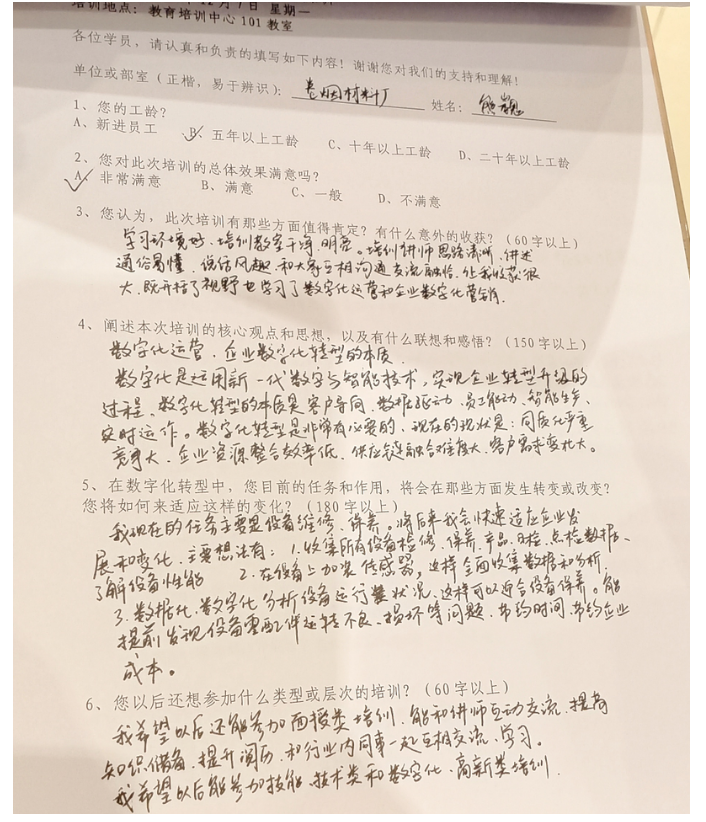 12月7日 星期一
培训地点:教育培训中心101教室
各位学员,请认真和负责的填写如下内容!谢谢您对我们的支持和理解!
单位或部室(正楷,易于辨识):卷烟材料厂 姓名:熊巍
1、您的工龄?
A、新进员工 B、五年以上工龄 C、十年以上工龄 D、二十年以上工龄
2、您对此次培训的总体效果满意吗?
A、非常满意 B、满意 C、一般 D、不满意
3、您认为,此次培训有那些方面值得肯定?有什么意外的收获?(60字以上)
学习环境好、培训教室干净、明亮。培训讲师思路清晰、讲述
通俗易懂、说话风趣、和大家互相沟通交流融恰、让我收获很
大、既开括了视野也学习了数字化运营和企业数字化营销、
4、阐述本次培训的核心观点和思想,以及有什么联想和感悟?(150字以上)
数字化运营、企业数字化转型的本质、
数字化是运用新一代数字与智能技术,实现企业转型升级的
过程、数字化转型的本质是客户导向、数据驱动、员工能动、智能生产、
实时运作。数字化转型是非常有必要的、现在的现状是:同质化严重
竞争大、企业资源整合效率低、供应链融合难度大、客户需求变化大。
5、在数字化转型中,您目前的任务和作用,将会在那些方面发生转变或改变?
您将如何来适应这样的变化?(180字以上)
我现在的任务主要是设备维修、保养。将后来我会快速适应企业发
展和变化、主要想法有:1.收集所有设备检修、保养、产品、日检、点检数据、
了解设备性能 2.在设备上加装传感器,这样全面收集数据和分析、
3.数据化、数字化分析设备运行状况、这样可以迎合设备保养。能
提前发现设备零配件运转不良、损坏等问题、节约时间、节约企业
成本。
6、您以后还想参加什么类型或层次的培训?(60字以上)
我希望以后还能参加面授类培训、能和讲师互动交流、提高
知识储备、提升阅历、和行业内同事一起互相交流、学习。
我希望以后能参加技能、技术类和数字化、高新类培训、